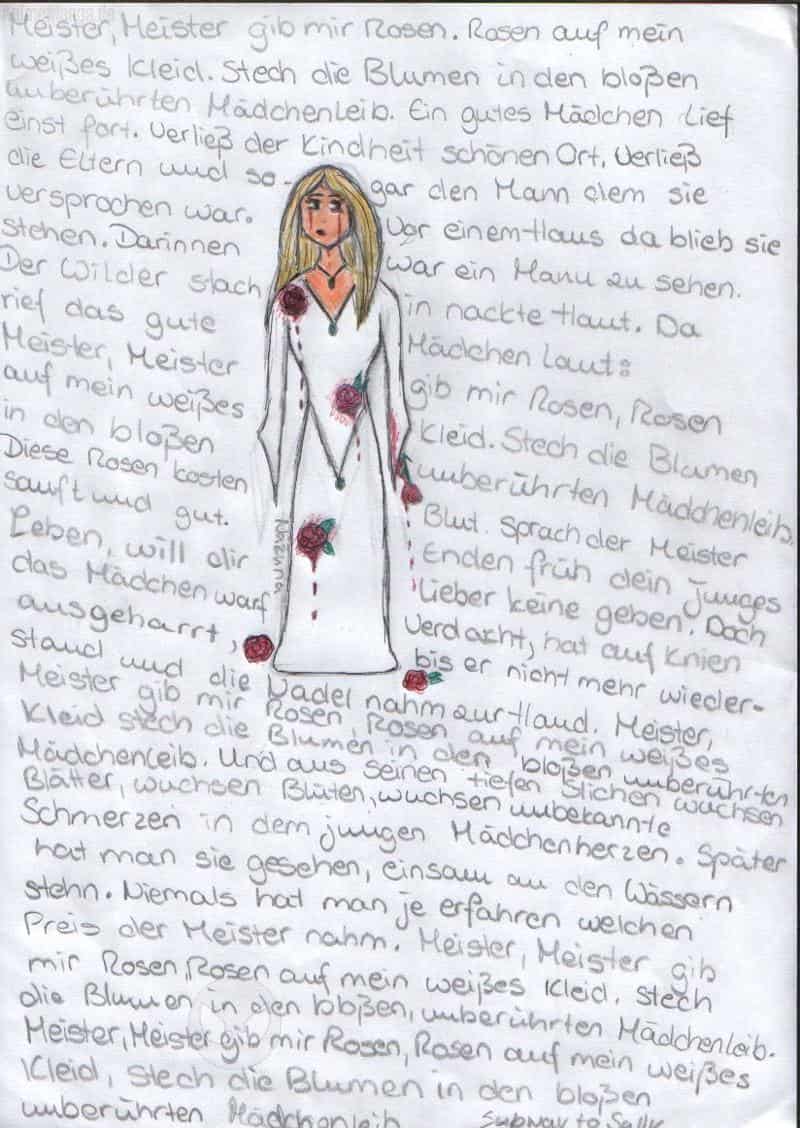 Meister, Meister gib mir Rosen. Rosen auf mein
weißes Kleid. Stech die Blumen in den bloßen
unberührten Mädchenleib. Ein gutes Mädchen lief
einst fort. Verließ der Kindheit schönen Ort, Verließ
die Eltern und so- gar den Mann dem sie
versprochen war. Vor einem Haus da blieb sie
stehen. Darinnen war ein Mann zu sehen.
Der Wilder stach in nackte Haut. Da
rief das gute Mädchen laut:
Meister, Meister gib mir Rosen, Rosen
auf mein weißes Kleid. Stech die Blumen
in den bloßen unberührten Mädchenleib.
Diese Rosen kosten Blut. Sprach der Meister
sanft und gut. Enden früh dein junges
Leben, will dir lieber keine geben. Doch
das Mädchen warf Verdacht, hat auf Knien
ausgeharrt, bis er nicht mehr wieder-
stand und die Nadel nahm zur Hand. Meister,
Meister gib mir Rosen, Rosen auf mein weißes
Kleid stech die Blumen in den bloßen unberührten
Mädchenleib. Und aus seinen tiefen Stichen wuchsen
Blätter, wuchsen Blüten, wuchsen unbekannte
Schmerzen in dem jungen Mädchenherzen. Später
hat man sie gesehen, einsam an den Wässern
stehn. Niemals hat man je erfahren welchen
Preis der Meister nahm. Meister, Meister gib
mir Rosen, Rosen auf mein weißes Kleid. Stech
die Blumen in den bloßen, unberührten Mädchenleib.
Meister, Meister gib mir Rosen, Rosen auf mein weißes
Kleid, stech die Blumen in den bloßen
unberührten Mädchenleib
Subway to Sally